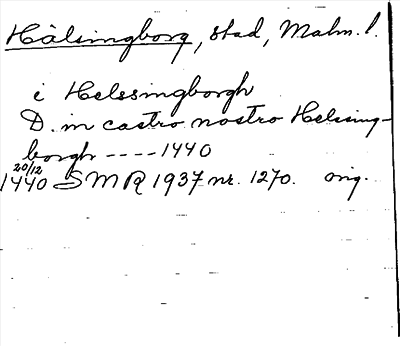 Hälsingborg, stad, Malm. l.
i Helssingborgh
D. in castro nostro Helsing-
borgh ---- 1440
20/12
1440 SMR 1937 nr. 1270. orig.